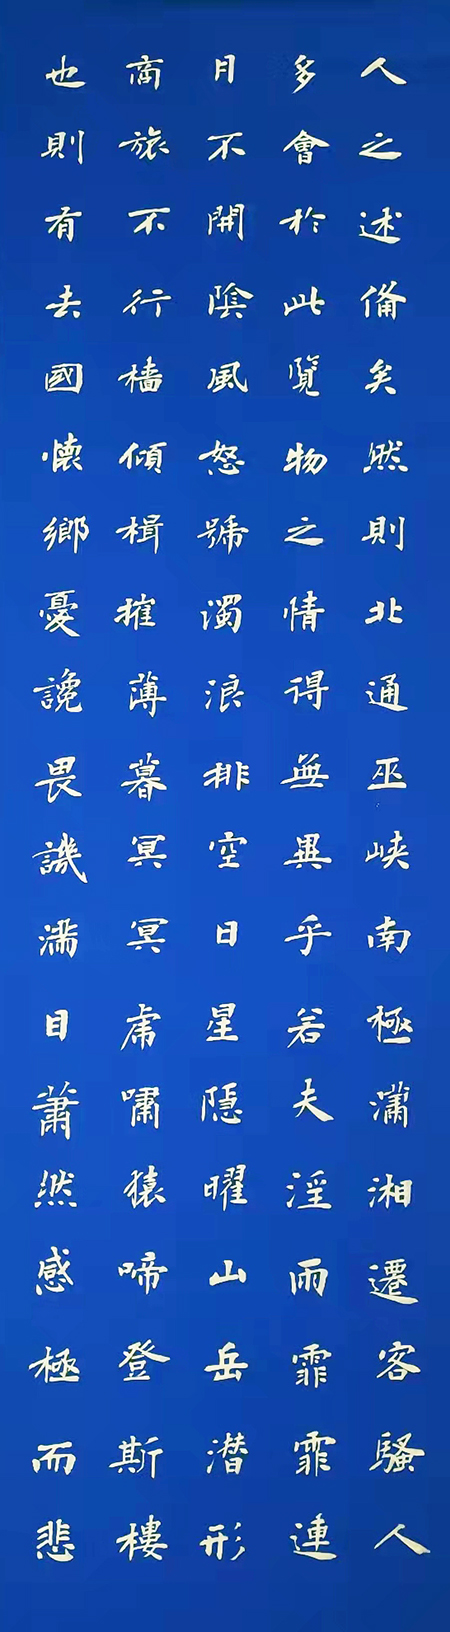 人之述備矣然則北通巫峽南極瀟湘遷客騷人
多會於此覽物之情得無異乎若夫淫雨霏霏連
月不開陰風怒號濁浪排空日星隱曜山岳潜形
商旅不行檣傾楫摧薄暮冥冥虎嘯猿啼登斯樓
也則有去國懷鄉憂讒畏譏滿目蕭然感極而悲